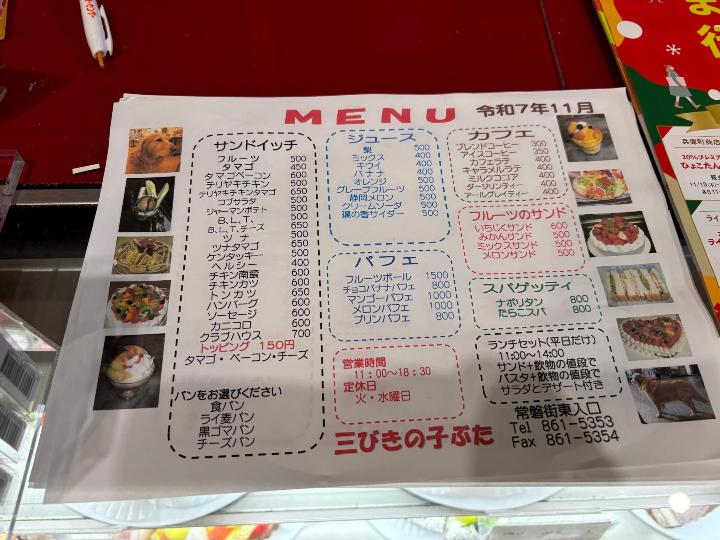 MENU
令和7年11月
サンドイッチ
フルーツ 500
タマゴ 450
タマゴベーコン 600
テリヤキチキン 500
テリヤキチキンタマゴ 650
コブサラダ 500
ジャーマンポテト 500
B.L.T. 500
B.L.T.チーズ 650
ツナ 500
ツナタマゴ 650
ケンタッキー 500
ヘルシー 400
チキン南蛮 600
チキンカツ 600
トンカツ 650
ハンバーグ 600
ソーセージ 600
カニコロ 600
クラブハウス 700
トッピング 150円
タマゴ・ベーコン・チーズ
パンをお選びください
食パン
ライ麦パン
黒ゴマパン
チーズパン
ジュース
梨 500
ミックス 400
キウイ 400
バナナ 400
オレンジ 500
グレープフルーツ 500
静岡メロン 500
クリームソーダ 500
瑞の香サイダー 500
パフェ
フルーツボール 1500
チョコバナナパフェ 800
マンゴーパフェ 1000
メロンパフェ 1000
プリンパフェ 800
営業時間
11:00〜18:30
定休日
火・水曜日
三びきの子ぶた
カフェ
ブレンドコーヒー 300
アイスコーヒー 350
カフェラテ 400
キャラメルラテ 400
ミルクココア 400
ダージリンティー 400
アールグレイティー 400
フルーツのサンド
いちじくサンド 600
みかんサンド 500
ミックスサンド 500
メロンサンド 500
スパゲッティ
ナポリタン 800
たらこスパ 800
ランチセット(平日だけ)
11:00〜14:00
サンド+飲物の値段で
パスタ+飲物の値段で
サラダとデザート付き
常磐街東入口
Tel 861-5353
Fax 861-5354
兵庫町商店